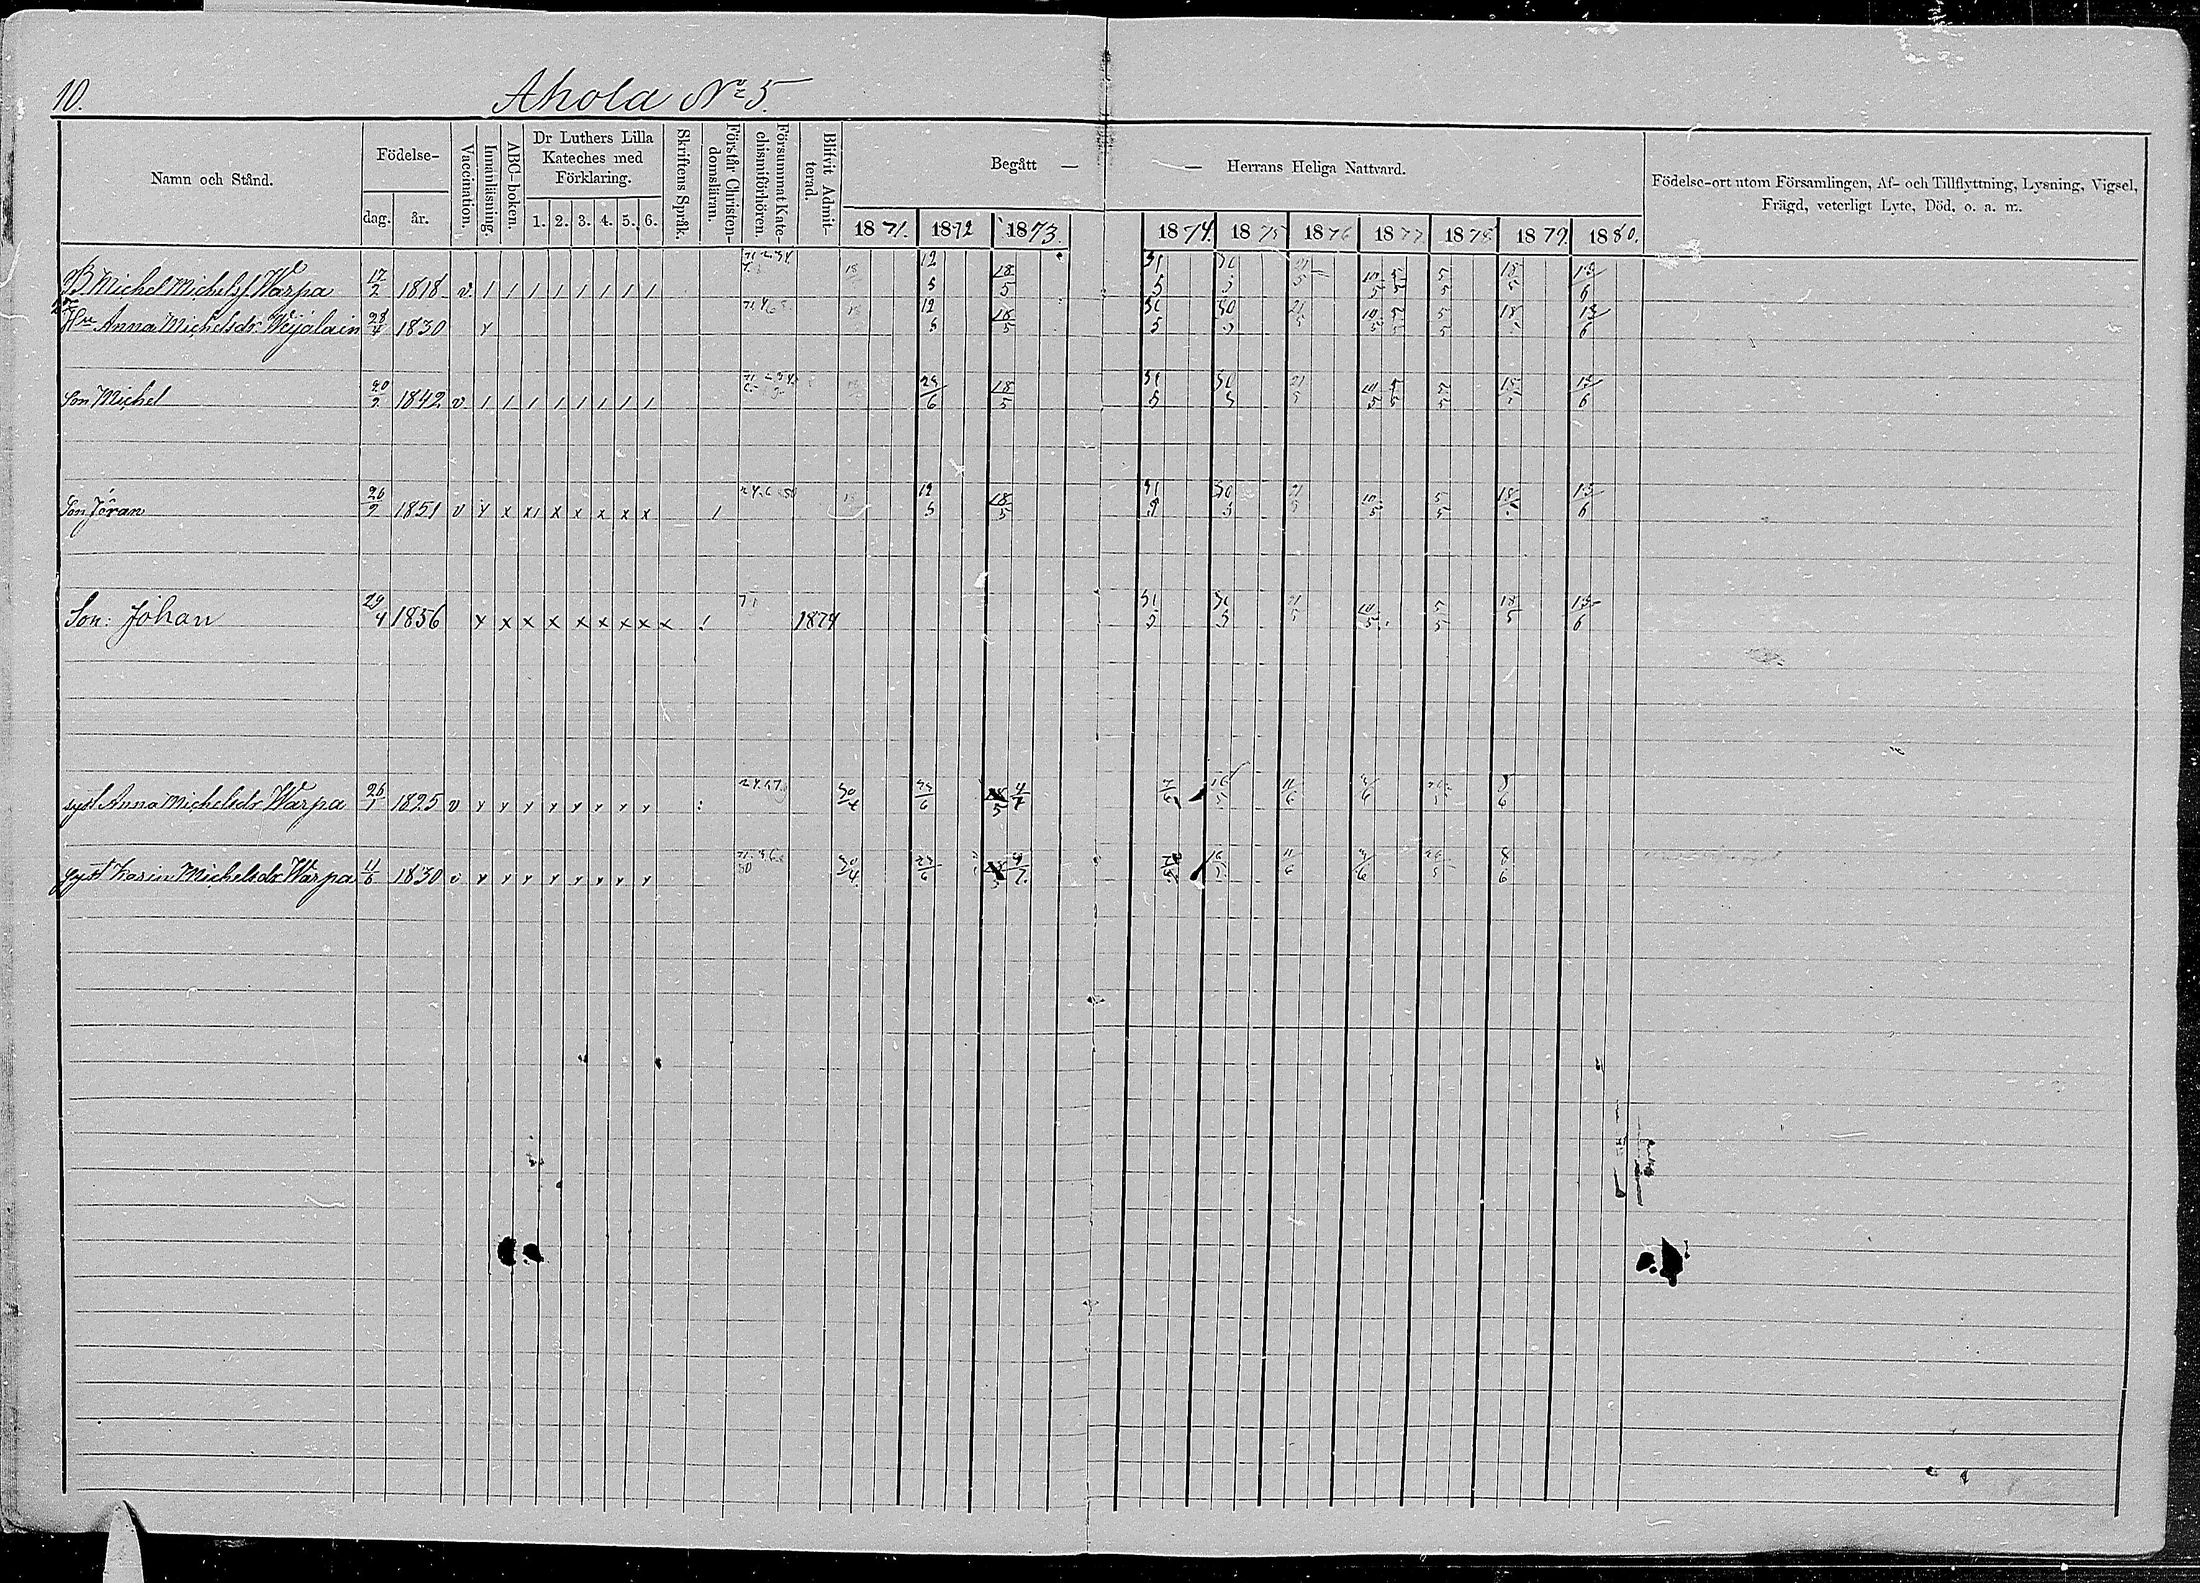 10.
Ahola No 5.
Namn och Stånd.
Födelse-
dag. år.
Vaccination.
Innanläsning.
ABC-boken.
Dr Luthers Lilla
Kateches med
Förklaring.
1. 2. 3. 4. 5. 6.
Skriftens Språk.
Förstår Christen-
domsläran.
Försummat Kate-
chismiförhören.
Blifvit Admit-
terad.
Begått — — Herrans Heliga Nattvard.
1871. 1872 1873. 1874. 1875 1876 1877 1878 1879. 1880.
Födelse-ort utom Församlingen, Af- och Tillflyttning, Lysning, Vigsel,
Frägd, veterligt Lyte, Död, o. a. m.
B Michel Michelsf Warpa 17/2 1818 v / / / / / / / / 12/5 18/5 31/5 30/5 21/5 10/5 5/5 5/5 18/5 13/6
Hu Anna Michelsdr 28/4 1830 x 12/5 18/5 31/5 30/5 21/5 10/5 5/5 5/5 18 13/6
Son Michel 20/2 1842 v / / / / / / / / 18/5 31/5 30/5 21/5 10/5 5/5 5/5 18 13/6
Son Jöran 26/2 1851 v x x x x x x x x / 12/5 18/5 30/5 21/5 10/5 5/5 18 13/6
Son: Johan 29/4 1856 x x x x x x x x x 71 1874 31/5 30/5 21/5 10/5 5/5 18/5 13/6
syst Anna Michelsdr Warpa 26/1 1825 v x x x x x x x x 30/4 16/5 11/6 8/6
syst Karin Michelsdr Warpa 11/6 1830 v x x x x x x x x 30/4 16/5 11/6 8/6